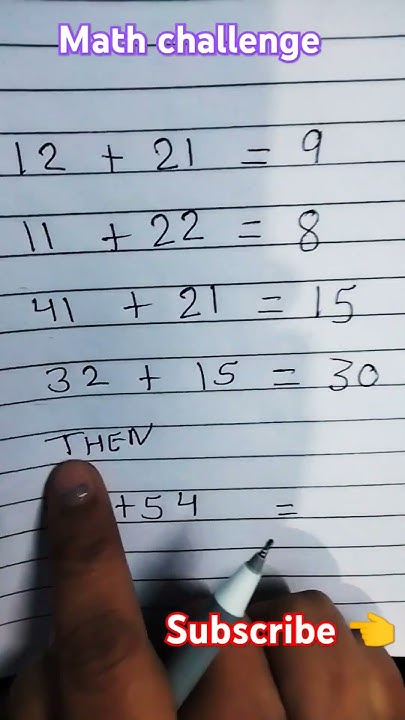 Math challenge
12 + 21 = 9
11 + 22 = 8
41 + 21 = 15
32 + 15 = 30
THEN
+54 =
Subscribe 👈